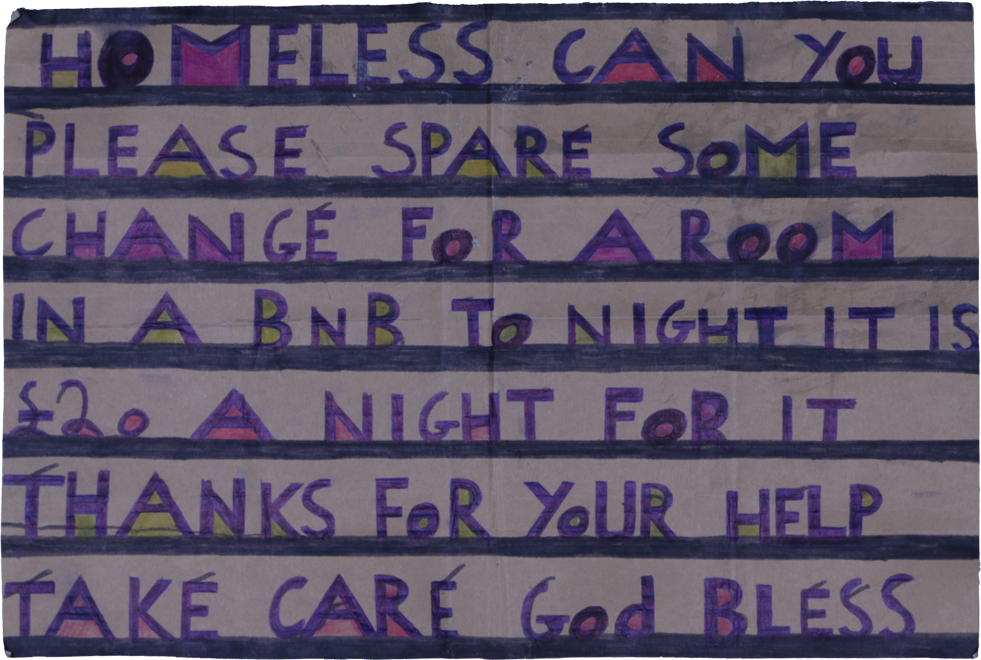 HOMELESS CAN YoU
PLEASE SPARE SoME
CHANGE FoR A RooM
IN A BNB To NIGHT IT IS
£20 A NIGHT FoR IT
THANKS FoR YoUR HELP
TAKE CARE God BLESS